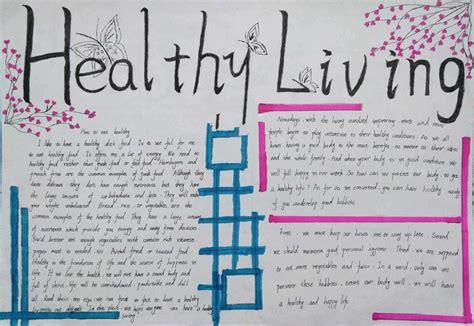 Healthy Living
How to eat healthy
I like to have a healthy diet food. It is useful for me
to eat healthy food. It offers me a lot of energy. We need to
healthy food rather than junk food or fast food. Hamburgers and
french fries are the common examples of junk food. Although they
taste delicious they does not enough nutrients but they have
the large amount of carbohydrate and fats. They will make
your weight unbalanced. Bread, rice or vegetables are the
common examples of the healthy food. They have a large amount
of nutrients which provide you energy and away from diseases.
You'd better eat enough vegetables with contain rich vitamins
proper meat is needed too. Avoid fried or roasted food.
Healthy is the foundation of life and the source of happiness in
life. If we lose the health we will not have a sound body and
full of shine. life will be unendurable and dull
all. And there are tips we can find on how to have a healthy
hope everyone can have a healthy
living!
Nowadays with the living standard improving more and more
people begin to play attention to their healthy conditions. As we all
know, having a good body is the most benefits no matter to their own
and the whole family. And when your body is in good condition we
will full happy in our work. So how can we protect our body, to get
a healthy life? As far as I'm concerned, you can have healthy easily
if you can develop good habbits.
First, we must keep our hours not to stay up late. Second,
we should maintain good personal hygiene. Third, we are supposed
to eat more vegetables and fruits. In a word, only can we
promise these habbits, ensure our body will, we will have
a healthy and happy life.